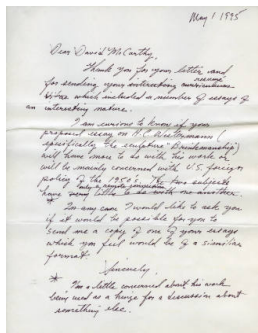 May 1 1995
Dear David McCarthy,
Thank you for your letter and
for sending your interesting resume
which included a number of essays of
an interesting nature.
I am curious to know if your
proposed essay on H.C. Westermann (
specifically the sculpture Brinkmanship)
will have more to do with his work or
will be mainly concerned with U.S. foreign
policy of the 1950's.
have with one another.
In any case I would like to ask you
if it would be possible for you to
send me a copy of one of your essays
which you feel would be of a similar
format.
Sincerely,
* I'm a little concerned about his work
being used as a hinge for a discussion about
something else.